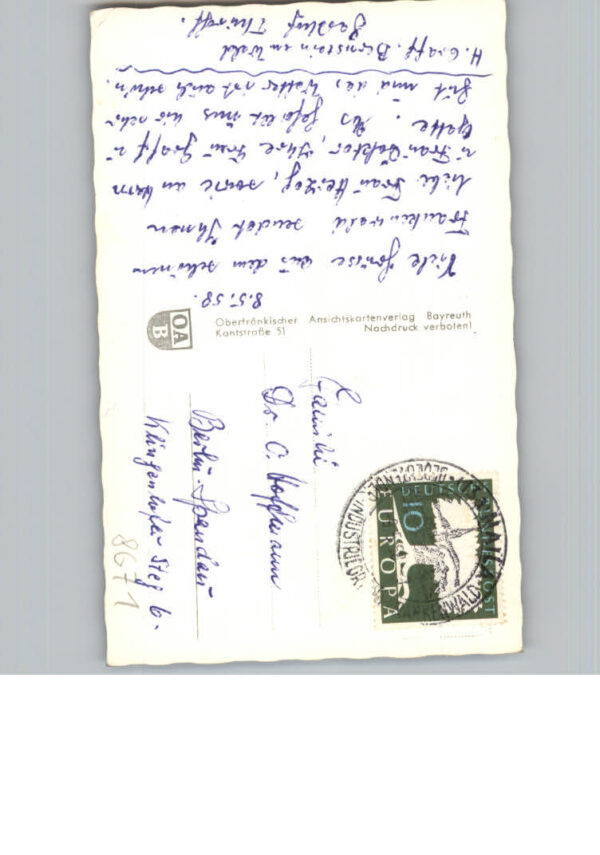 H. Graff. Bernstein im Wald
Gasthof Thüroff.
8.5.58.
Viele Grüsse aus dem schönen
Frankenwald sendet Ihnen
liebe Frau Herzog, sowie an Herrn
u Frau Doktor, Ihre Frau Graff u
Gatte. Es gefällt uns hier sehr
gut und das Wetter ist auch schön.
OA
B
Oberfränkischer Ansichtskartenverlag Bayreuth
Kantstraße 51 Nachdruck verboten!
Familie
Dr. C. Hoffmann
Berlin-Spandau
Klingenhofer Steg 6.
8671
DEUTSCHE BUNDESPOST
10
EUROPA